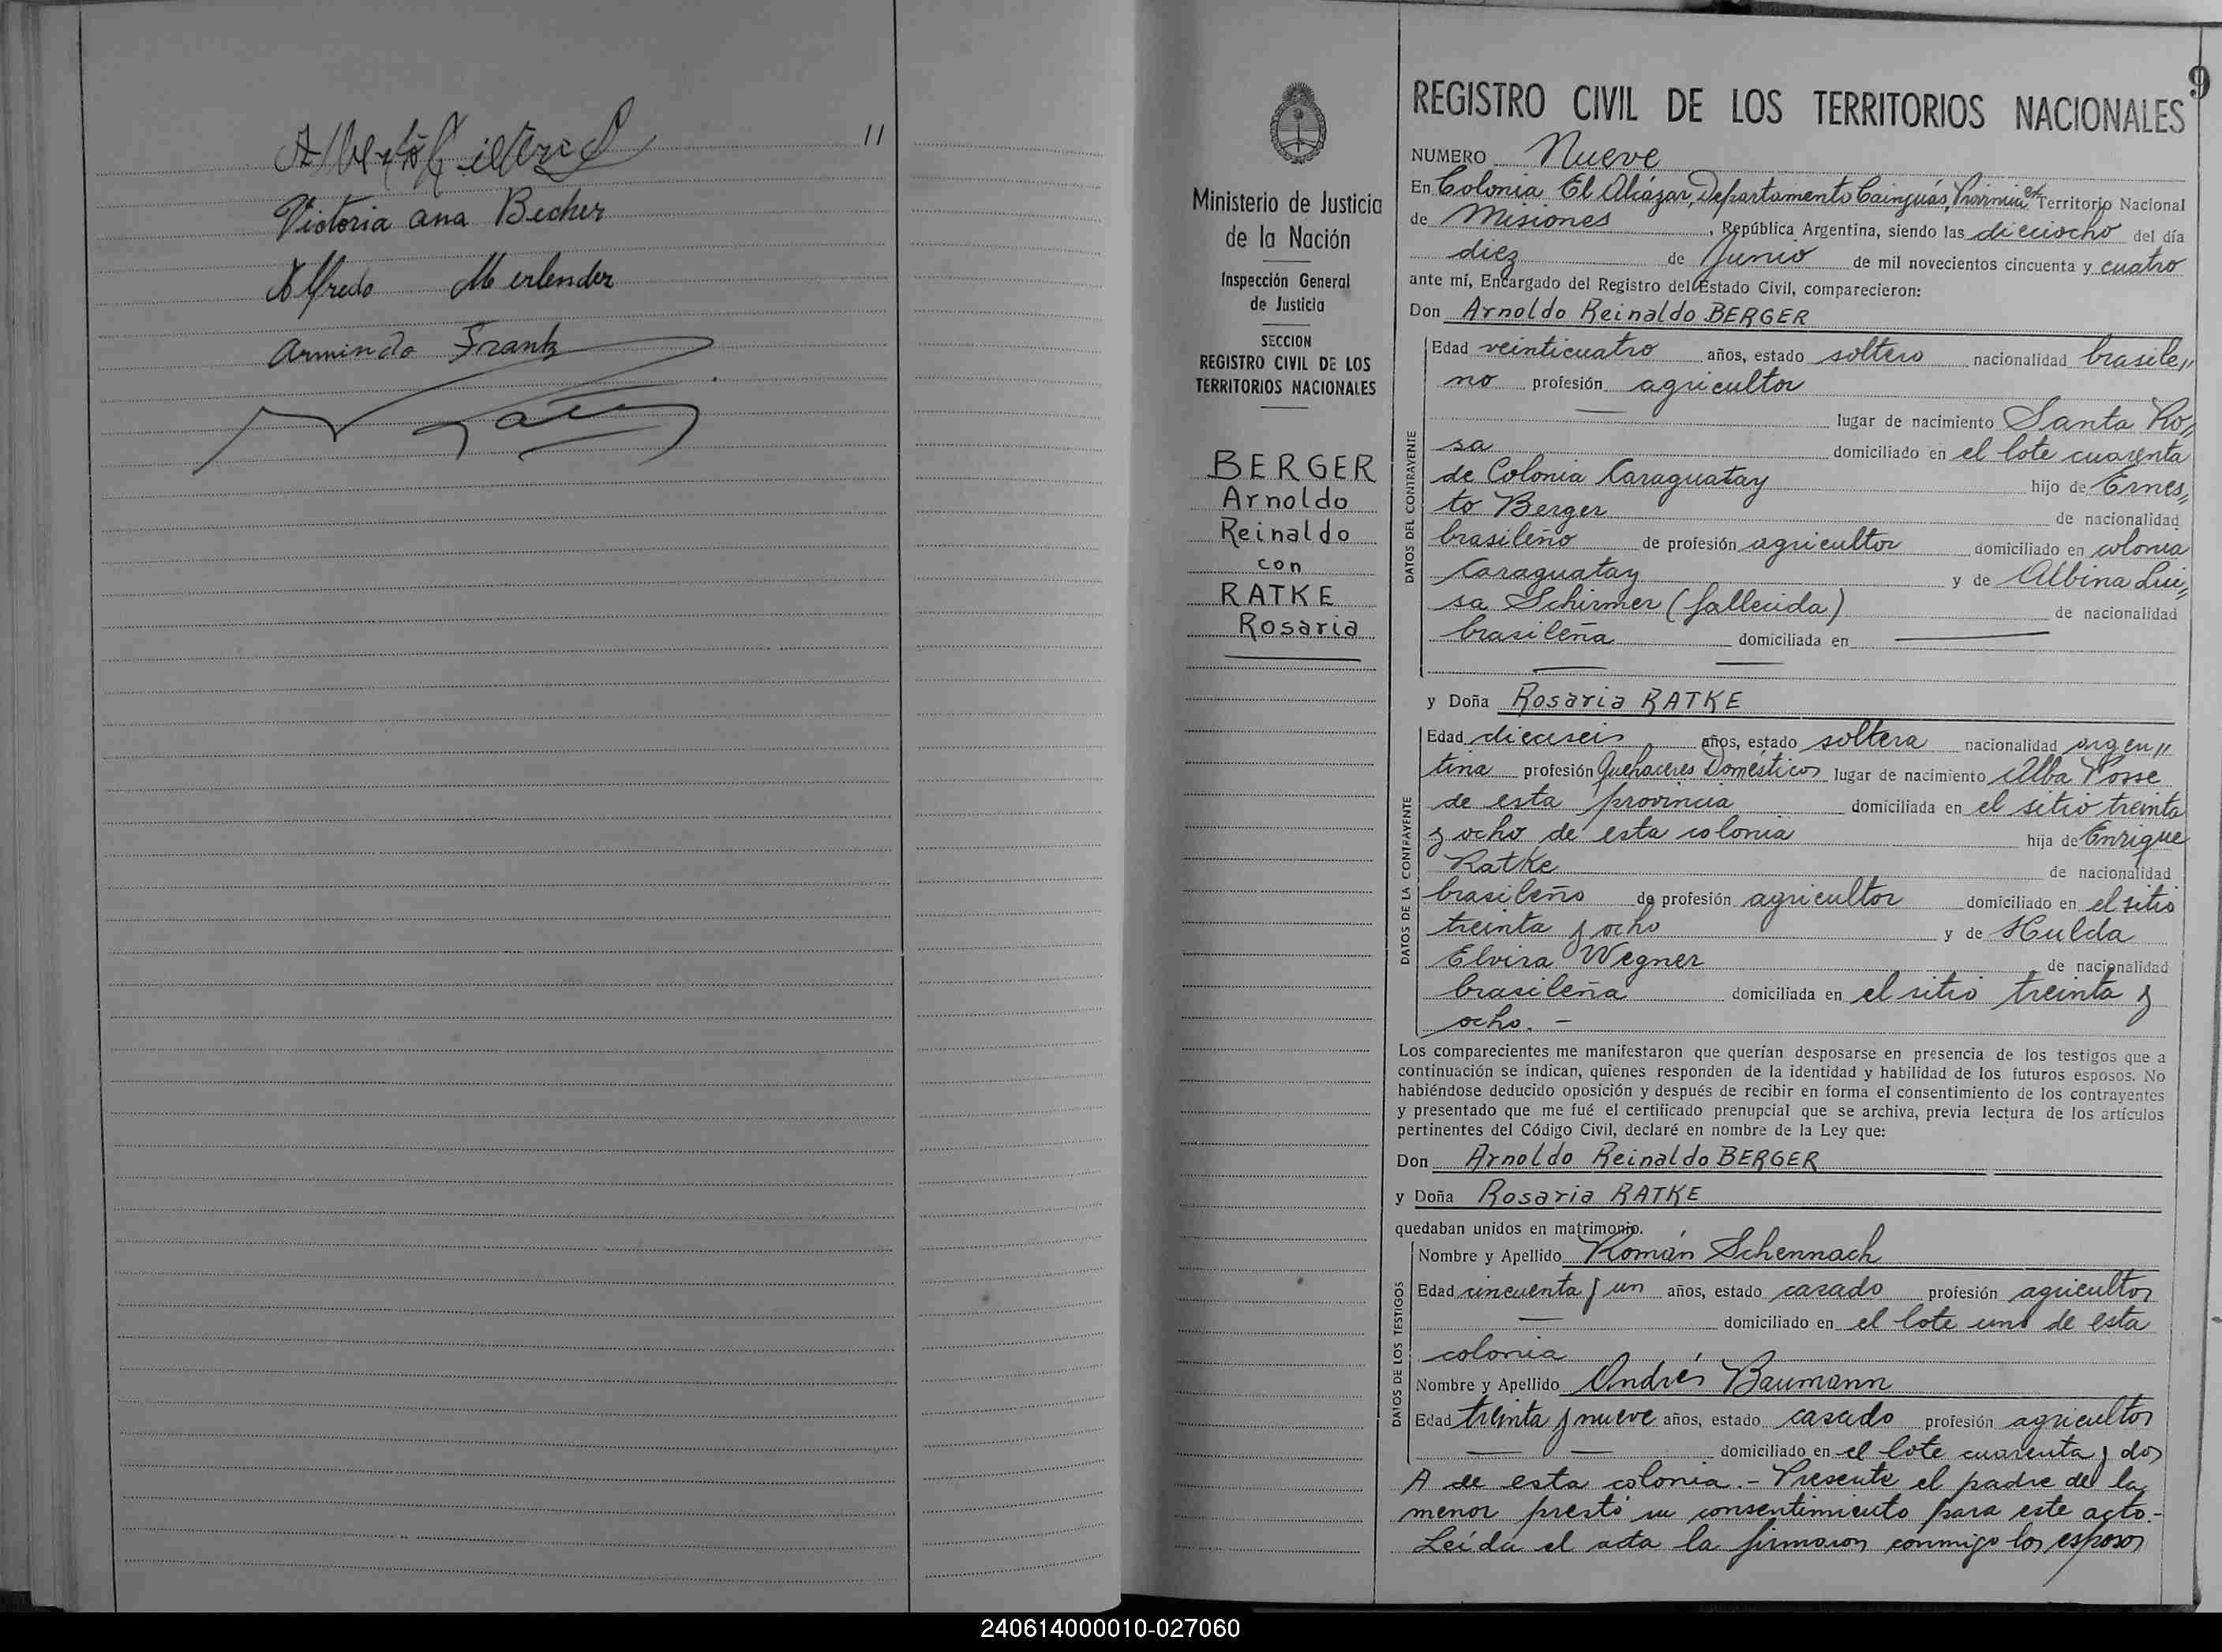 11
Victoria ana Becher
Alfredo Merlender
Armindo Frank
Ministerio de Justicia
de la Nación
Inspección General
de Justicia
SECCION
REGISTRO CIVIL DE LOS
TERRITORIOS NACIONALES
BERGER
Arnoldo
Reinaldo
con
RATKE
Rosaria
9
REGISTRO CIVIL DE LOS TERRITORIOS NACIONALES
NUMERO Nueve
En Colonia El Alcázar, Departamento Cainguás, Provincia ex Territorio Nacional
de Misiones, República Argentina, siendo las dieciocho del día
diez de Junio de mil novecientos cincuenta y cuatro
ante mí, Encargado del Registro del Estado Civil, comparecieron:
Don Arnoldo Reinaldo BERGER
DATOS DEL CONTRAYENTE
Edad veinticuatro años, estado soltero nacionalidad brasile〃
no profesión agricultor
lugar de nacimiento Santa Ro〃
sa domiciliado en el lote cuarenta
de Colonia Caraguatay hijo de Ernes〃
to Berger de nacionalidad
brasileño de profesión agricultor domiciliado en colonia
Caraguatay y de Albina Lui〃
sa Schirmer (fallecida) de nacionalidad
brasileña domiciliada en
y Doña Rosaria RATKE
DATOS DE LA CONTRAYENTE
Edad dieciseis años, estado soltera nacionalidad argen〃
tina profesión Quehaceres Domésticos lugar de nacimiento Alba Posse
de esta provincia domiciliada en el sitio treinta
y ocho de esta colonia hija de Enrique
Ratke de nacionalidad
brasileño de profesión agricultor domiciliado en el sitio
treinta y ocho y de Hulda
Elvira Wegner de nacionalidad
brasileña domiciliada en el sitio treinta y
ocho. -
Los comparecientes me manifestaron que querían desposarse en presencia de los testigos que a
continuación se indican, quienes responden de la identidad y habilidad de los futuros esposos. No
habiéndose deducido oposición y después de recibir en forma el consentimiento de los contrayentes
y presentado que me fué el certificado prenupcial que se archiva, previa lectura de los artículos
pertinentes del Código Civil, declaré en nombre de la Ley que:
Don Arnoldo Reinaldo BERGER
y Doña Rosaria RATKE
quedaban unidos en matrimonio.
DATOS DE LOS TESTIGOS
Nombre y Apellido Román Schennach
Edad cincuenta y un años, estado casado profesión agricultor
domiciliado en el lote uno de esta
colonia
Nombre y Apellido Andrés Baumann
Edad treinta y nueve años, estado casado profesión agricultor
domiciliado en el lote cuarenta y dos
A de esta colonia. - Presente el padre de la
menor prestó su consentimiento para este acto. -
Leída el acta la firmaron conmigo los esposos
240614000010-027060